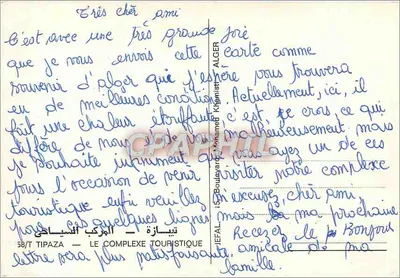 Très cher ami
C'est avec une très grande joie
que je vous envois cette carte comme
souvenir d'alger que j'espère vous trouvera
en de meilleures conditions. Actuellement, ici, il
fait une chaleur étouffante, c'est, je crois ce qui
diffère de nous de vous malheureusement, mais
je souhaite infiniment que vous ayez un de ces
jours l'occasion de venir visiter notre complexe
touristique enfin veuillez m'excusez, cher ami,
pour ces quelques lignes mais ma prochaine
lettre sera plus satisfaisante. Recevez le Bonjour
amicale de ma
famille.
تيبازة - المركب السياحي
58/T TIPAZA — LE COMPLEXE TOURISTIQUE
JEFAL, 15, Boulevard Mohamed Khemisti - ALGER
CPARAMA